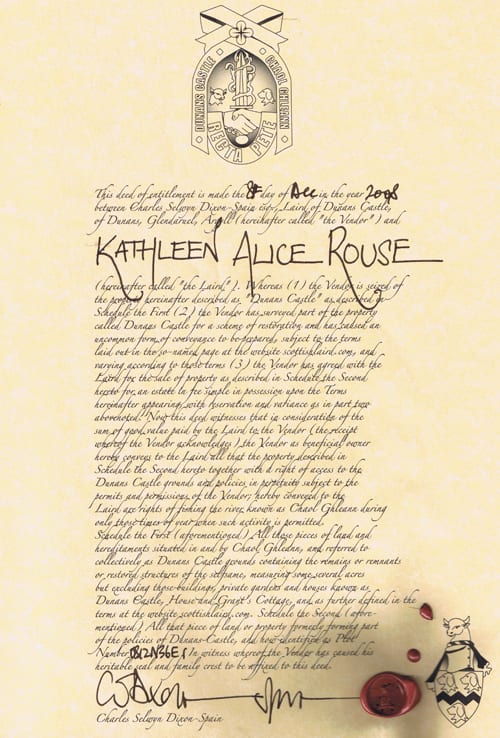 DUNANS CASTLE CHAOL GHLEANN
RECTA PETE
This deed of entitlement is made the 8th day of Dec in the year 2008
between Charles Selwyn Dixon-Spain esq., Laird of Dunans Castle,
of Dunans, Glendaruel, Argyll (hereinafter called "the Vendor") and
KATHLEEN ALICE ROUSE
(hereinafter called "the Laird"). Whereas (1) the Vendor is seized of
the property hereinafter described as "Dunans Castle" as described in
Schedule the First (2) the Vendor has surveyed part of the property
called Dunans Castle for a scheme of restoration and has caused an
uncommon form of conveyance to be prepared, subject to the terms
laid out in the so-named page at the website scottishlaird.com, and
varying according to those terms (3) the Vendor has agreed with the
Laird for the sale of property as described in Schedule the Second
hereto for an estate in fee simple in possession upon the Terms
hereinafter appearing, with reservation and variance as in part two
abovenoted. Now this deed witnesses that in consideration of the
sum of good value paid by the Laird to the Vendor (the receipt
whereof the Vendor acknowledges) the Vendor as beneficial owner
hereby conveys to the Laird all that the property described in
Schedule the Second hereto together with a right of access to the
Dunans Castle grounds and policies in perpetuity subject to the
permits and permissions of the Vendor; hereby conveyed to the
Laird are rights of fishing the river known as Chaol Ghleann during
only those times of year when such activity is permitted.
Schedule the First (aforementioned) All those pieces of land and
hereditaments situated in and by Chaol Ghleann, and referred to
collectively as Dunans Castle grounds containing the remains or remnants
or restored structures of the selfsame, measuring some several acres
but excluding those buildings, private gardens and houses known as
Dunans Castle, House and Grant's Cottage, and as further defined in the
terms at the website scottishlaird.com. Schedule the Second (afore-
mentioned) All that piece of land or property formerly forming part
of the policies of Dunans Castle, and now identified as Plot
Number In witness whereof the Vendor has caused his
heritable seal and family crest to be affixed to this deed.
Charles Selwyn Dixon-Spain